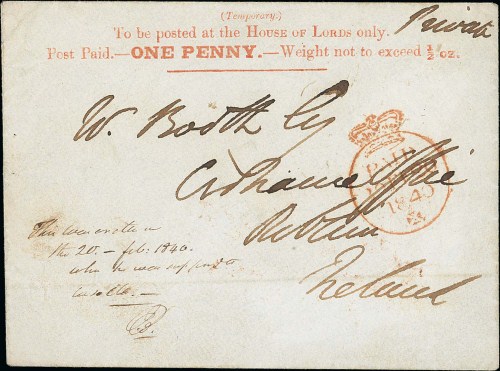 (Temporary.)
To be posted at the House of Lords only.
Post Paid.—ONE PENNY.—Weight not to exceed ½ oz.
Private
W. Booth Esq
Ordnance Office
Dublin
Ireland
PAID
1840
This was written
the 20 - feb: 1840.
when he was